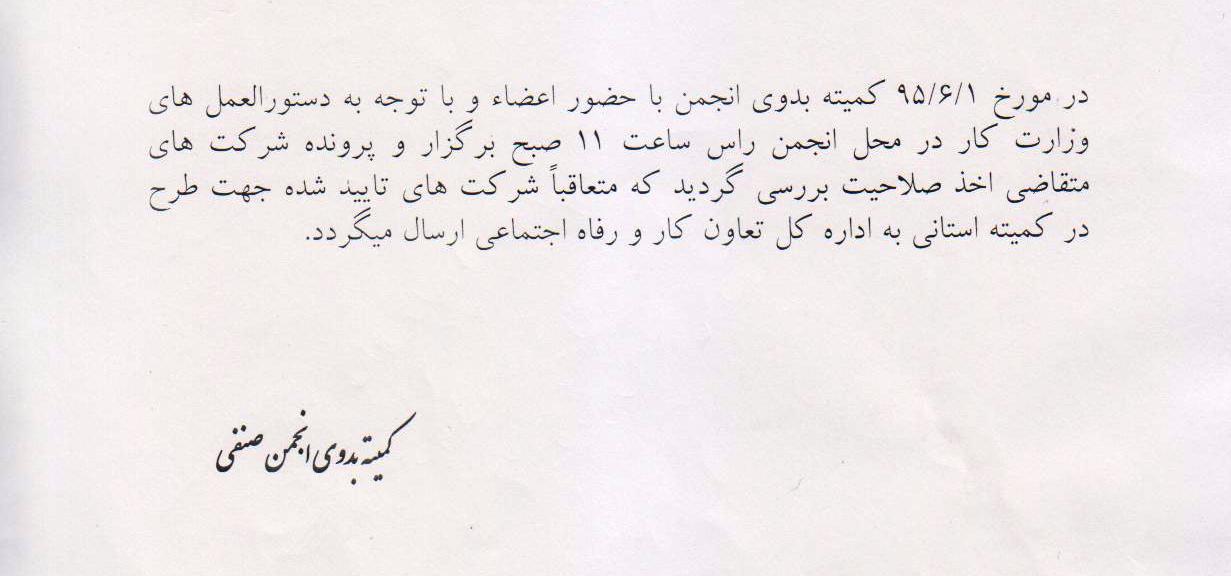 در مورخ ۹۵/۶/۱ کمیته بدوی انجمن با حضور اعضاء و با توجه به دستورالعمل های
وزارت کار در محل انجمن راس ساعت ۱۱ صبح برگزار و پرونده شرکت های
متقاضی اخذ صلاحیت بررسی گردید که متعاقباً شرکت های تایید شده جهت طرح
در کمیته استانی به اداره کل تعاون کار و رفاه اجتماعی ارسال میگردد.
کمیته بدوی انجمن صنفی